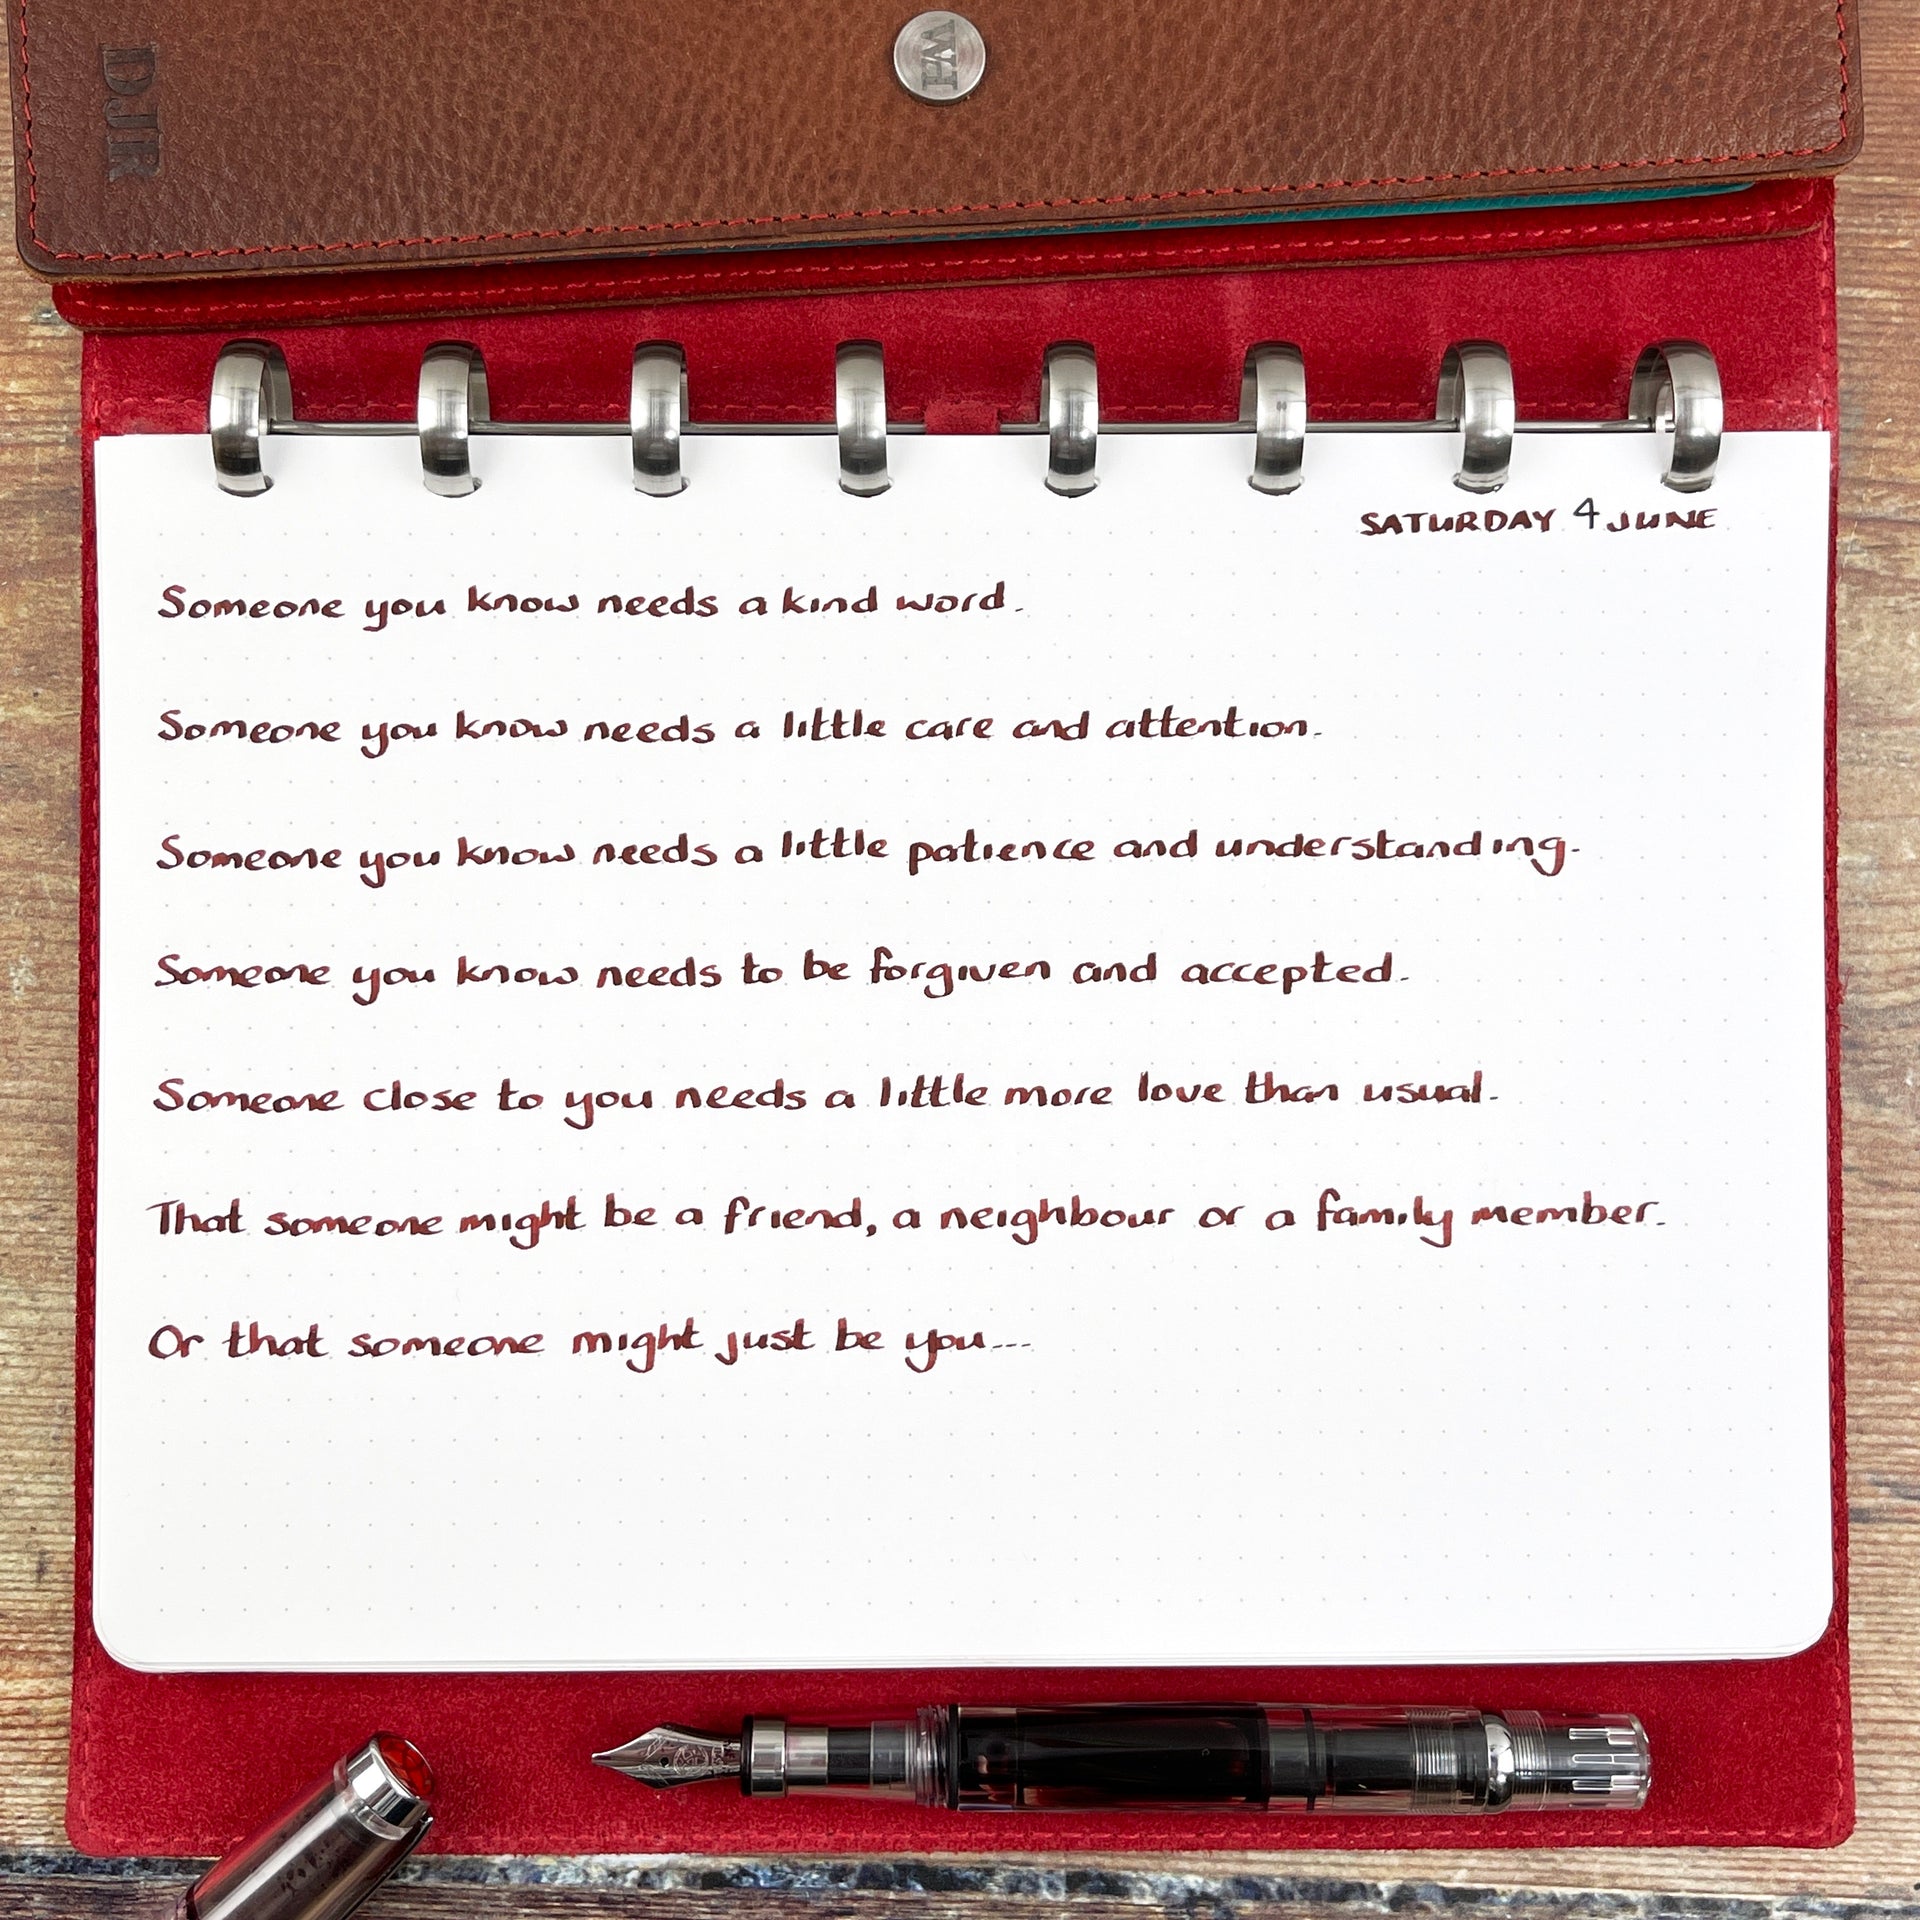 DJR
WH
SATURDAY 4 JUNE
Someone you know needs a kind word.
Someone you know needs a little care and attention.
Someone you know needs a little patience and understanding.
Someone you know needs to be forgiven and accepted.
Someone close to you needs a little more love than usual.
That someone might be a friend, a neighbour or a family member.
Or that someone might just be you...